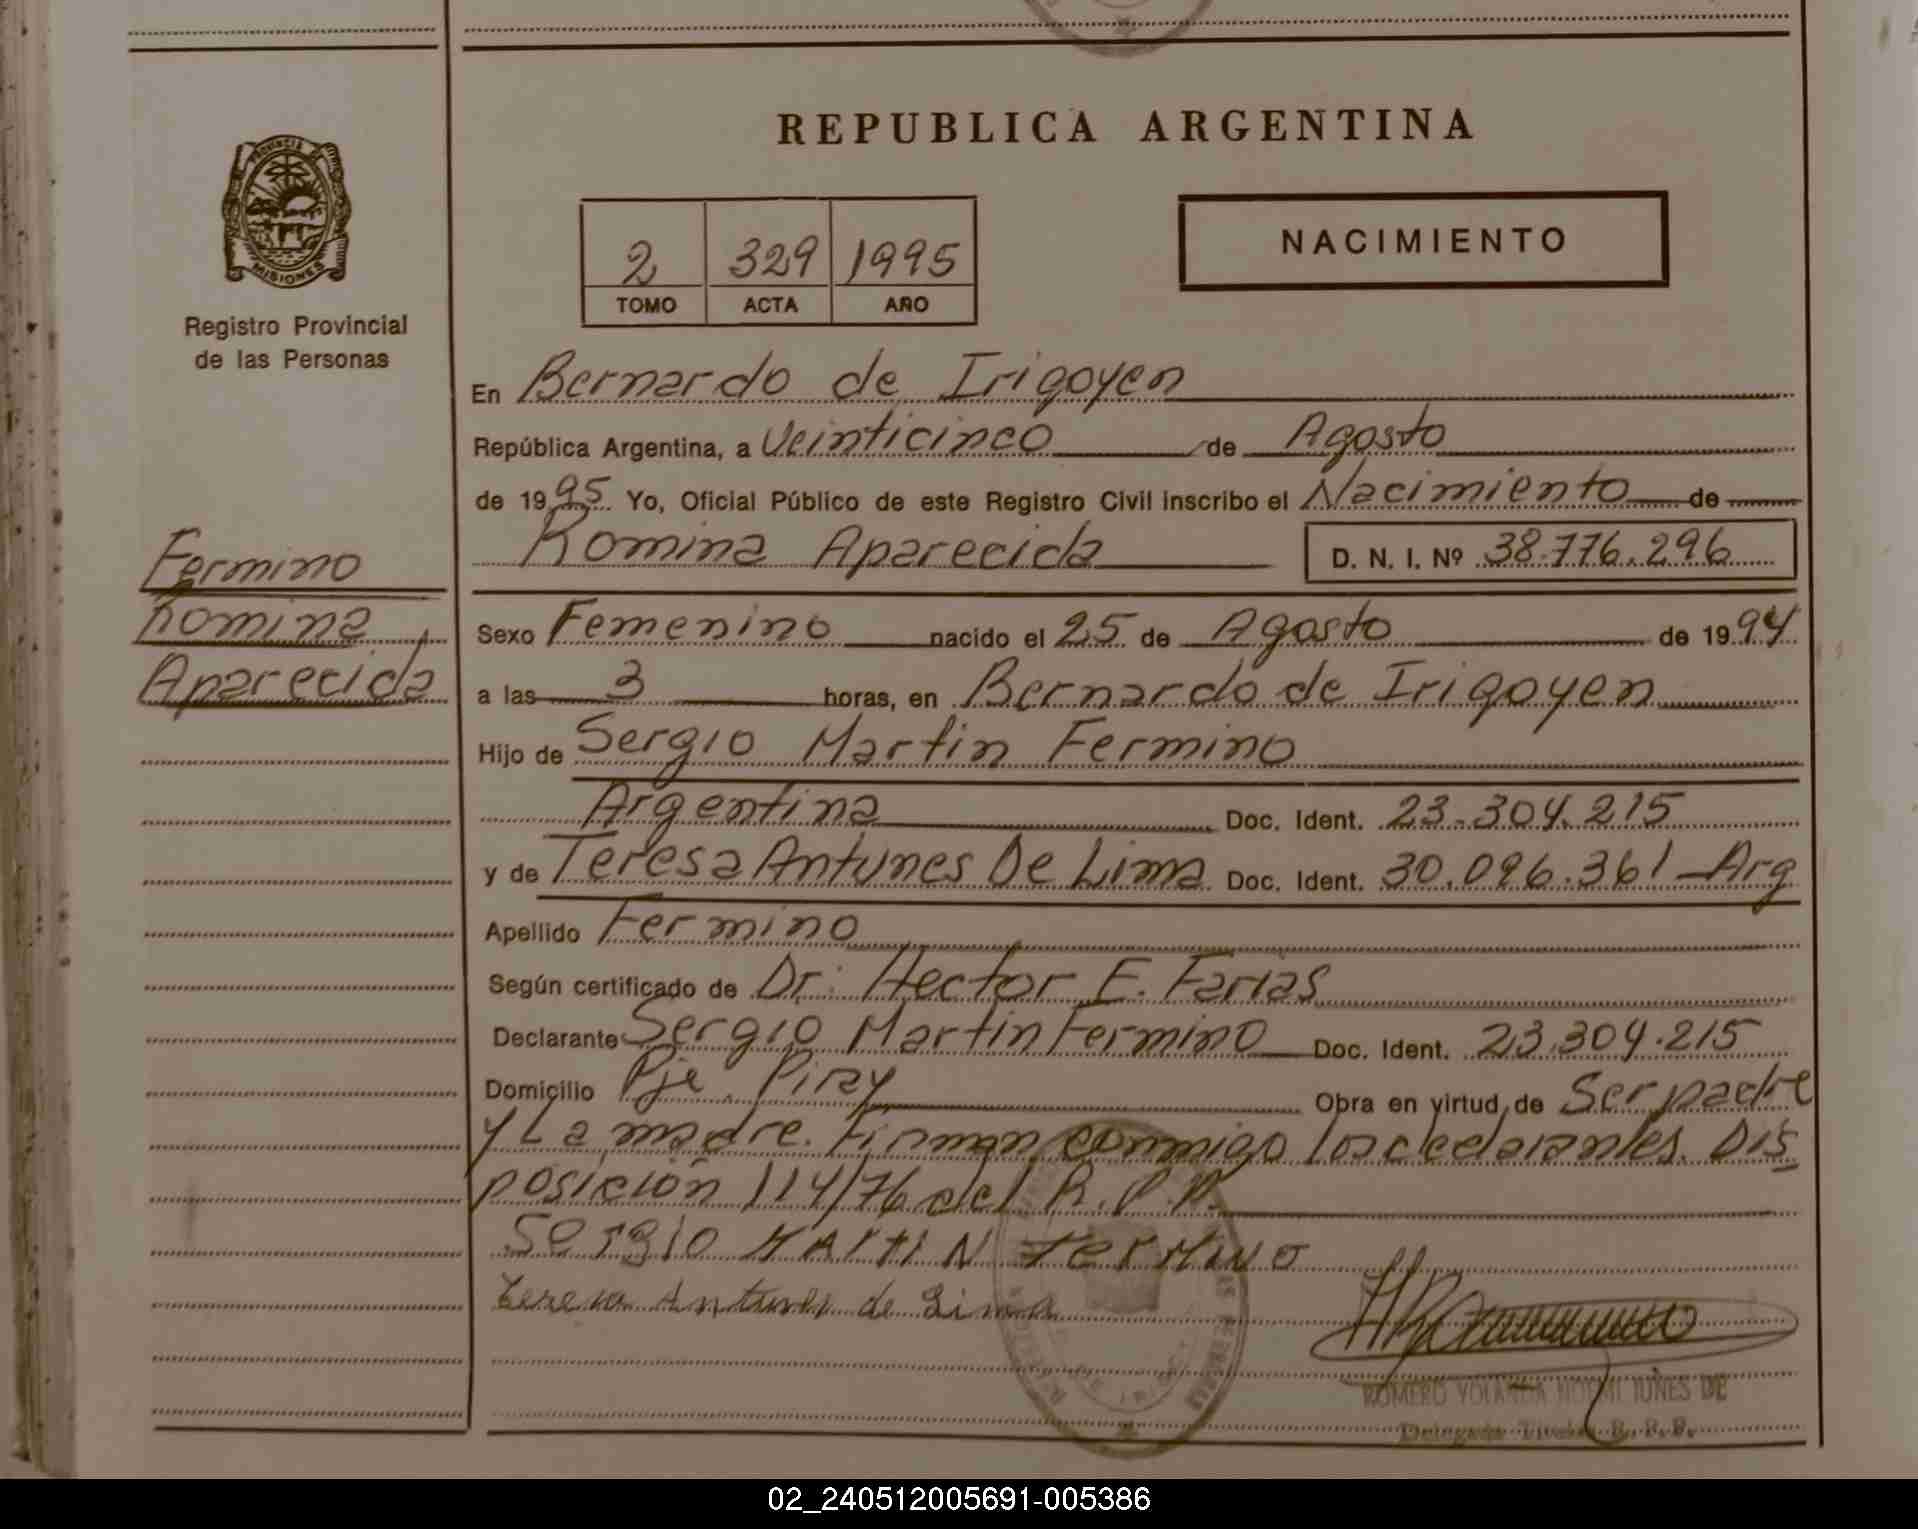 REPUBLICA ARGENTINA
PROVINCIA DE
MISIONES
Registro Provincial
de las Personas
2 329 1995
TOMO ACTA AÑO
NACIMIENTO
En Bernardo de Irigoyen
República Argentina, a Veinticinco de Agosto
de 1995 Yo, Oficial Público de este Registro Civil inscribo el Nacimiento de
Romina Aparecida D. N. I. Nº 38.776.296
Fermino
Romina
Aparecida
Sexo Femenino nacido el 25 de Agosto de 1994
a las 3 horas, en Bernardo de Irigoyen
Hijo de Sergio Martin Fermino
Argentina Doc. Ident. 23.304.215
y de Teresa Antunes De Lima Doc. Ident. 30.096.361 - Arg
Apellido Fermino
Según certificado de Dr. Hector E. Farias
Declarante Sergio Martin Fermino Doc. Ident. 23.304.215
Domicilio Pje. Piray Obra en virtud de Ser padre
y La madre. Firman conmigo los declarantes. Dis
posición 114/76 del R.P.P.
Sergio MARTIN FERMINO
Teresa Antunes de Lima
ROMERO YOLANDA NOEMI IUNES DE
Delegada Titular R. P. P.
02_240512005691-005386